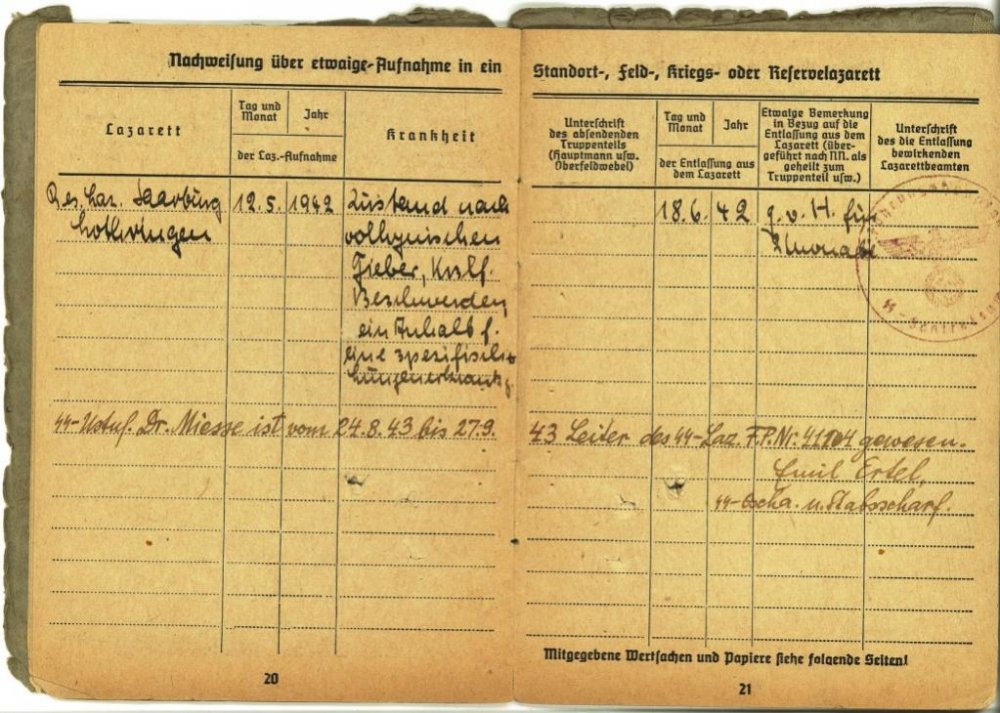 Nachweisung über etwaige Aufnahme in ein
Lazarett
Tag und
Monat
Jahr
der Laz.-Aufnahme
Krankheit
Res. Laz. Saarburg
Lothringen
12.5.
1942
Zustand nach
wolhynischem
Fieber,
Beschwerden,
ein Anhalt f.
eine spezifische
Lungenerkrankg
SS-Ustuf. Dr. Miesse ist vom 24.8.43 bis 27.9.
20
Standort-, Feld-, Kriegs- oder Reservelazarett
Unterschrift
des absendenden
Truppenteils
(Hauptmann usw.
Oberfeldwebel)
Tag und
Monat
Jahr
der Entlassung aus
dem Lazarett
Etwaige Bemerkung
in Bezug auf die
Entlassung aus dem
Lazarett (über-
geführt nach NN. als
geheilt zum
Truppenteil usw.)
Unterschrift
des die Entlassung
bewirkenden
Lazarettbeamten
18.6.
42
g.v.H. für
2 Monate
43 Leiter des SS-Laz. F.P.Nr. gewesen.
Emil Ertel,
SS-Oscha. u. Stabsscharf.
Mitgegebene Wertsachen und Papiere siehe folgende Seiten!
21